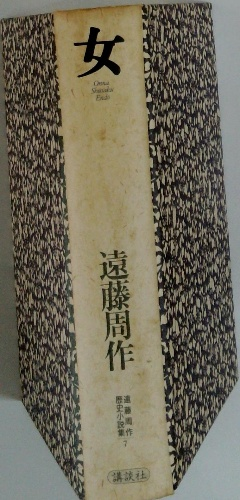 女
Onna
Shusaku
Endo
遠藤周作
遠藤周作
歴史小説集7
講談社